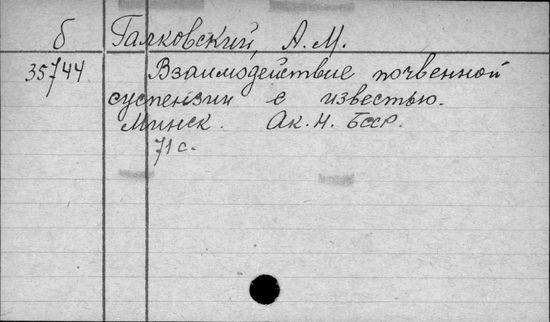 б Галковский, А.М.
35744 Взаимодействие почвенной
суспензии с известью.
Минск. Ак. Н. БССР.
71 с.